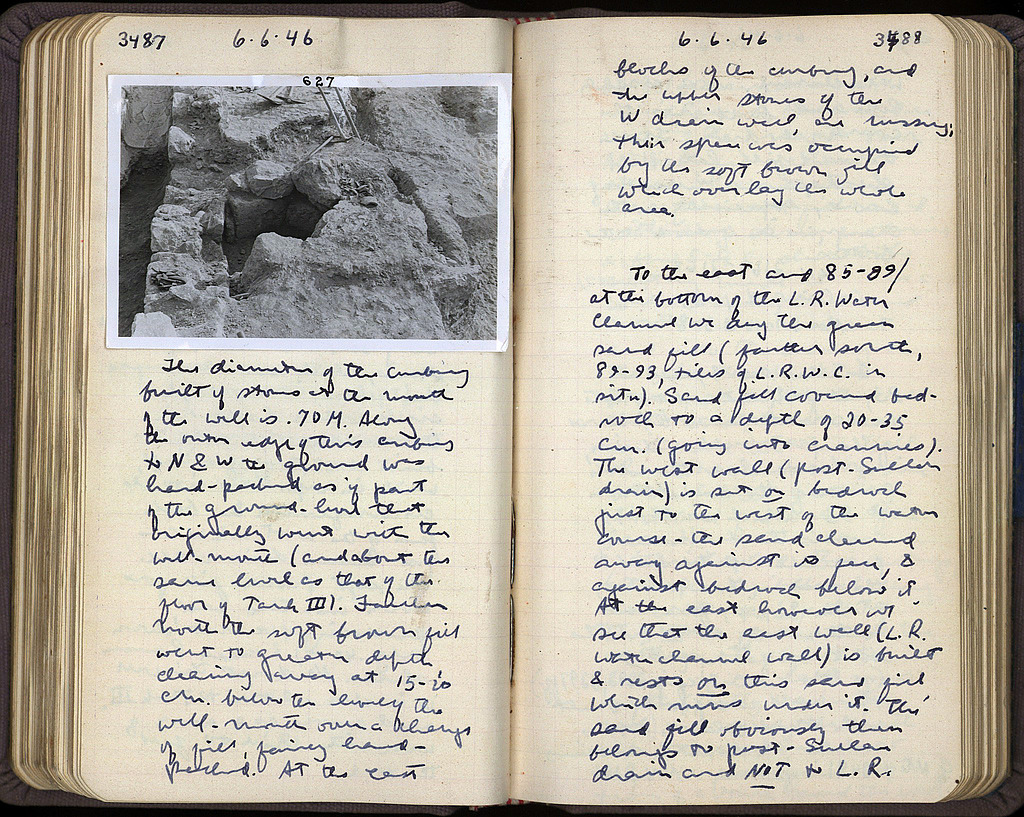 3487 6.6.46
627
The diameter of the curbing
built of stones at the mouth
of the well is .70 M. Along
the outer edge of this curbing
to N & W the ground was
hard-packed as if part
of the ground-level that
originally went with the
well-mouth (and about the
same level as that of the
floor of Tank III). Farther
north the soft brown fill
went to greater depth,
cleaning away at 15-20
cm. below the level of the
well-mouth over a change
of fill, fairly hard-
packed. At the east
6.6.46 3488
blocks of the curbing, and
the upper stones of the
W drain wall, are missing;
their space was occupied
by the soft brown fill
which overlay the whole
area.
To the east and 85-89/
at the bottom of the L.R. Water
Channel we dug the green
sand fill (farther south,
89-93, tiles of L.R.W.C. in
situ). Sand fill covered bed-
rock to a depth of 20-35
cm. (going into crannies).
The west wall (post-Sullan
drain) is set on bedrock
just to the west of the water
course - the sand cleaned
away against its face, &
against bedrock below it.
At the east however we
see that the east wall (L.R.
water channel wall) is built
& rests on this sand fill
which runs under it. The
sand fill obviously then
belongs to post-Sullan
drain and NOT to L.R.